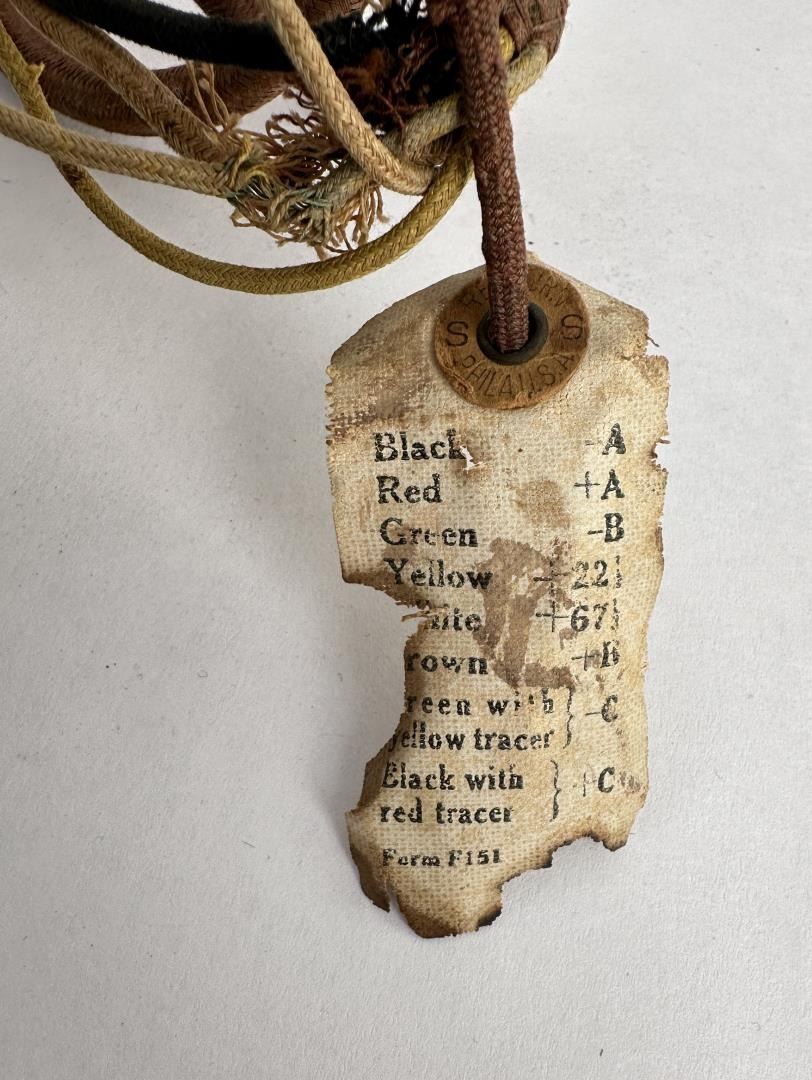 S S
PHILA U.S.A.
Black -A
Red +A
Green -B
Yellow +22½
hite +67½
rown +B
reen with } -C
yellow tracer
Black with } +C
red tracer
Form F151